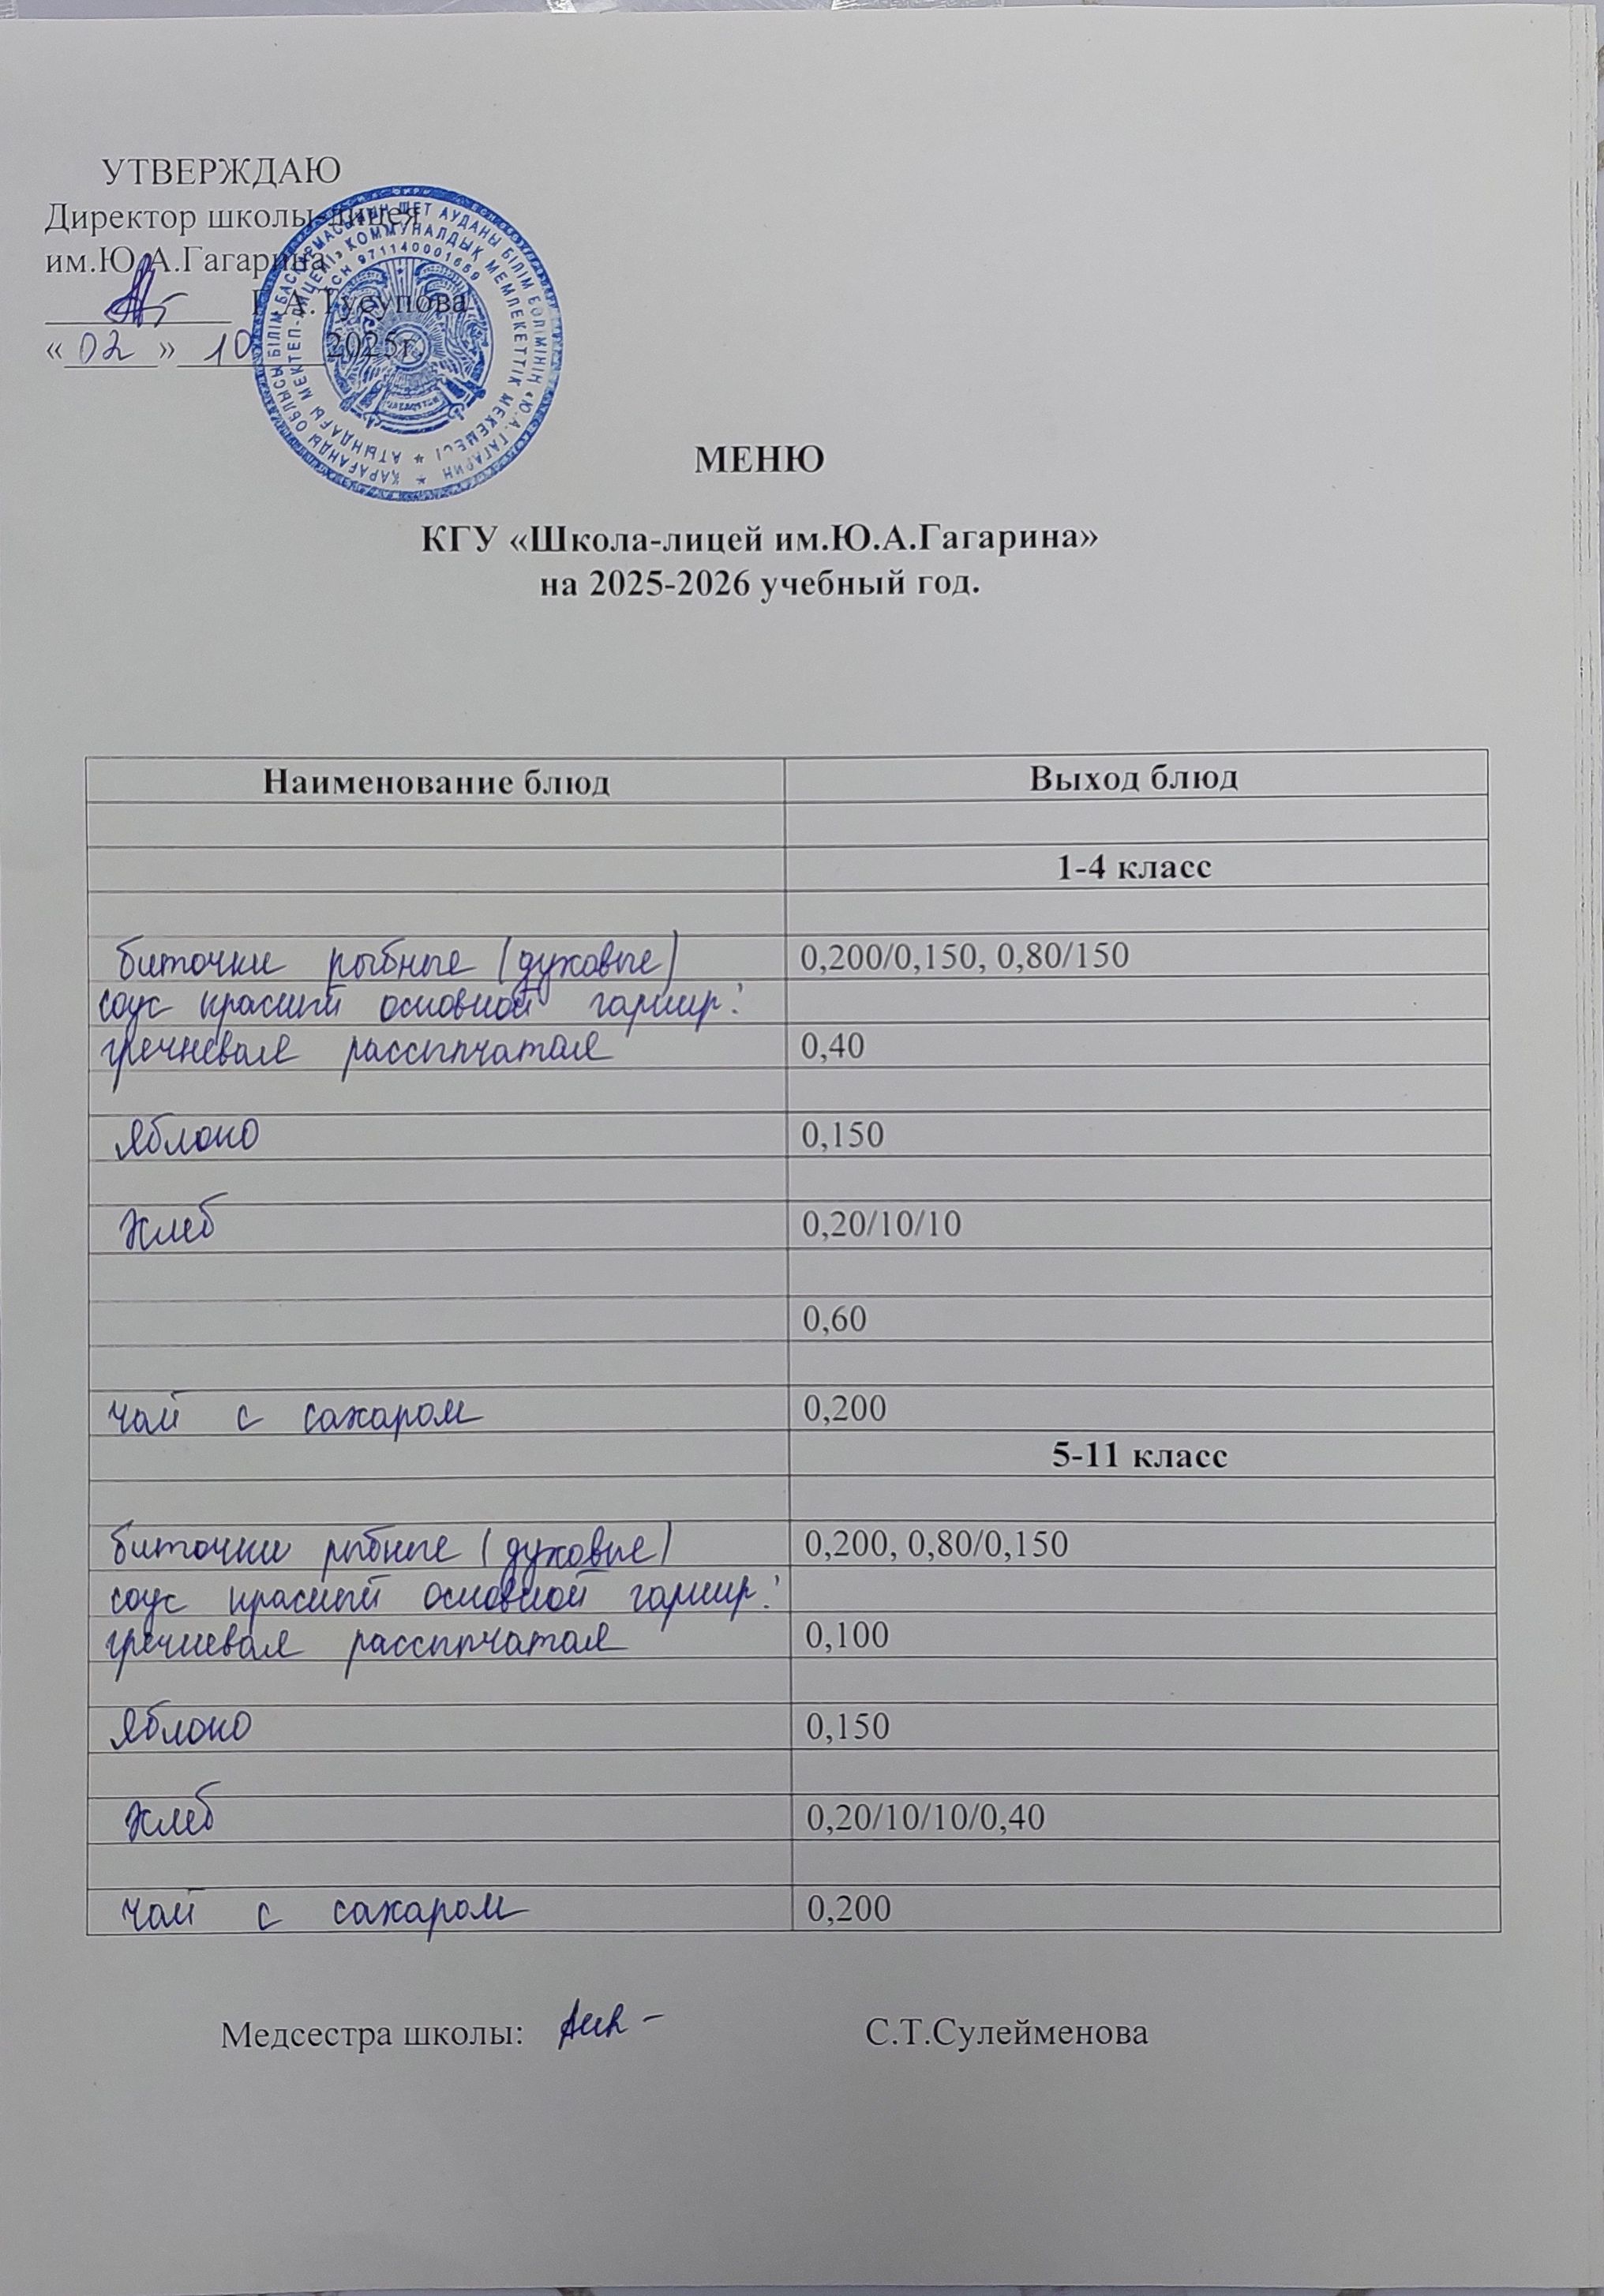 УТВЕРЖДАЮ
Директор школы-лицея
им.Ю.А.Гагарина
Г.А.Тусупова
«02» 10 2025г.
ҚАРАҒАНДЫ ОБЛЫСЫ БІЛІМ БАСҚАРМАСЫНЫҢ ШЕТ АУДАНЫ БІЛІМ БӨЛІМІНІҢ «Ю.А.ГАГАРИН
АТЫНДАҒЫ МЕКТЕП-ЛИЦЕЙІ» КОММУНАЛДЫҚ МЕМЛЕКЕТТІК МЕКЕМЕСІ
БСН 971140001659
МЕНЮ
КГУ «Школа-лицей им.Ю.А.Гагарина»
на 2025-2026 учебный год.
Наименование блюд Выход блюд
1-4 класс
биточки рыбные (духовые) 0,200/0,150, 0,80/150
соус красный основной гарнир:
гречневая рассыпчатая 0,40
Яблоко 0,150
Хлеб 0,20/10/10
0,60
чай с сахаром 0,200
5-11 класс
биточки рыбные (духовые) 0,200, 0,80/0,150
соус красный основной гарнир:
гречневая рассыпчатая 0,100
Яблоко 0,150
Хлеб 0,20/10/10/0,40
чай с сахаром 0,200
Медсестра школы: С.Т.Сулейменова